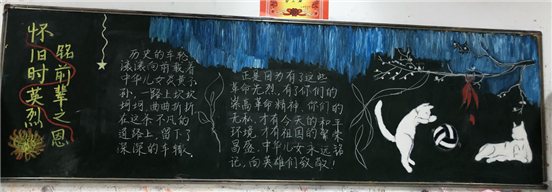 怀旧时英烈
铭前辈之恩
历史的车轮
滚滚向前载着
中华儿女炎黄子
孙一路上坎坎
坷坷、曲曲折折
在这个不凡的
道路上,留下了
深深的车辙。
正是因为有了这些
革命先烈,有了你们的
崇高革命精神,你们的
无私,才有今天的和平
环境,才有祖国的繁荣
昌盛。中华儿女永远铭
记,向英雄们致敬!